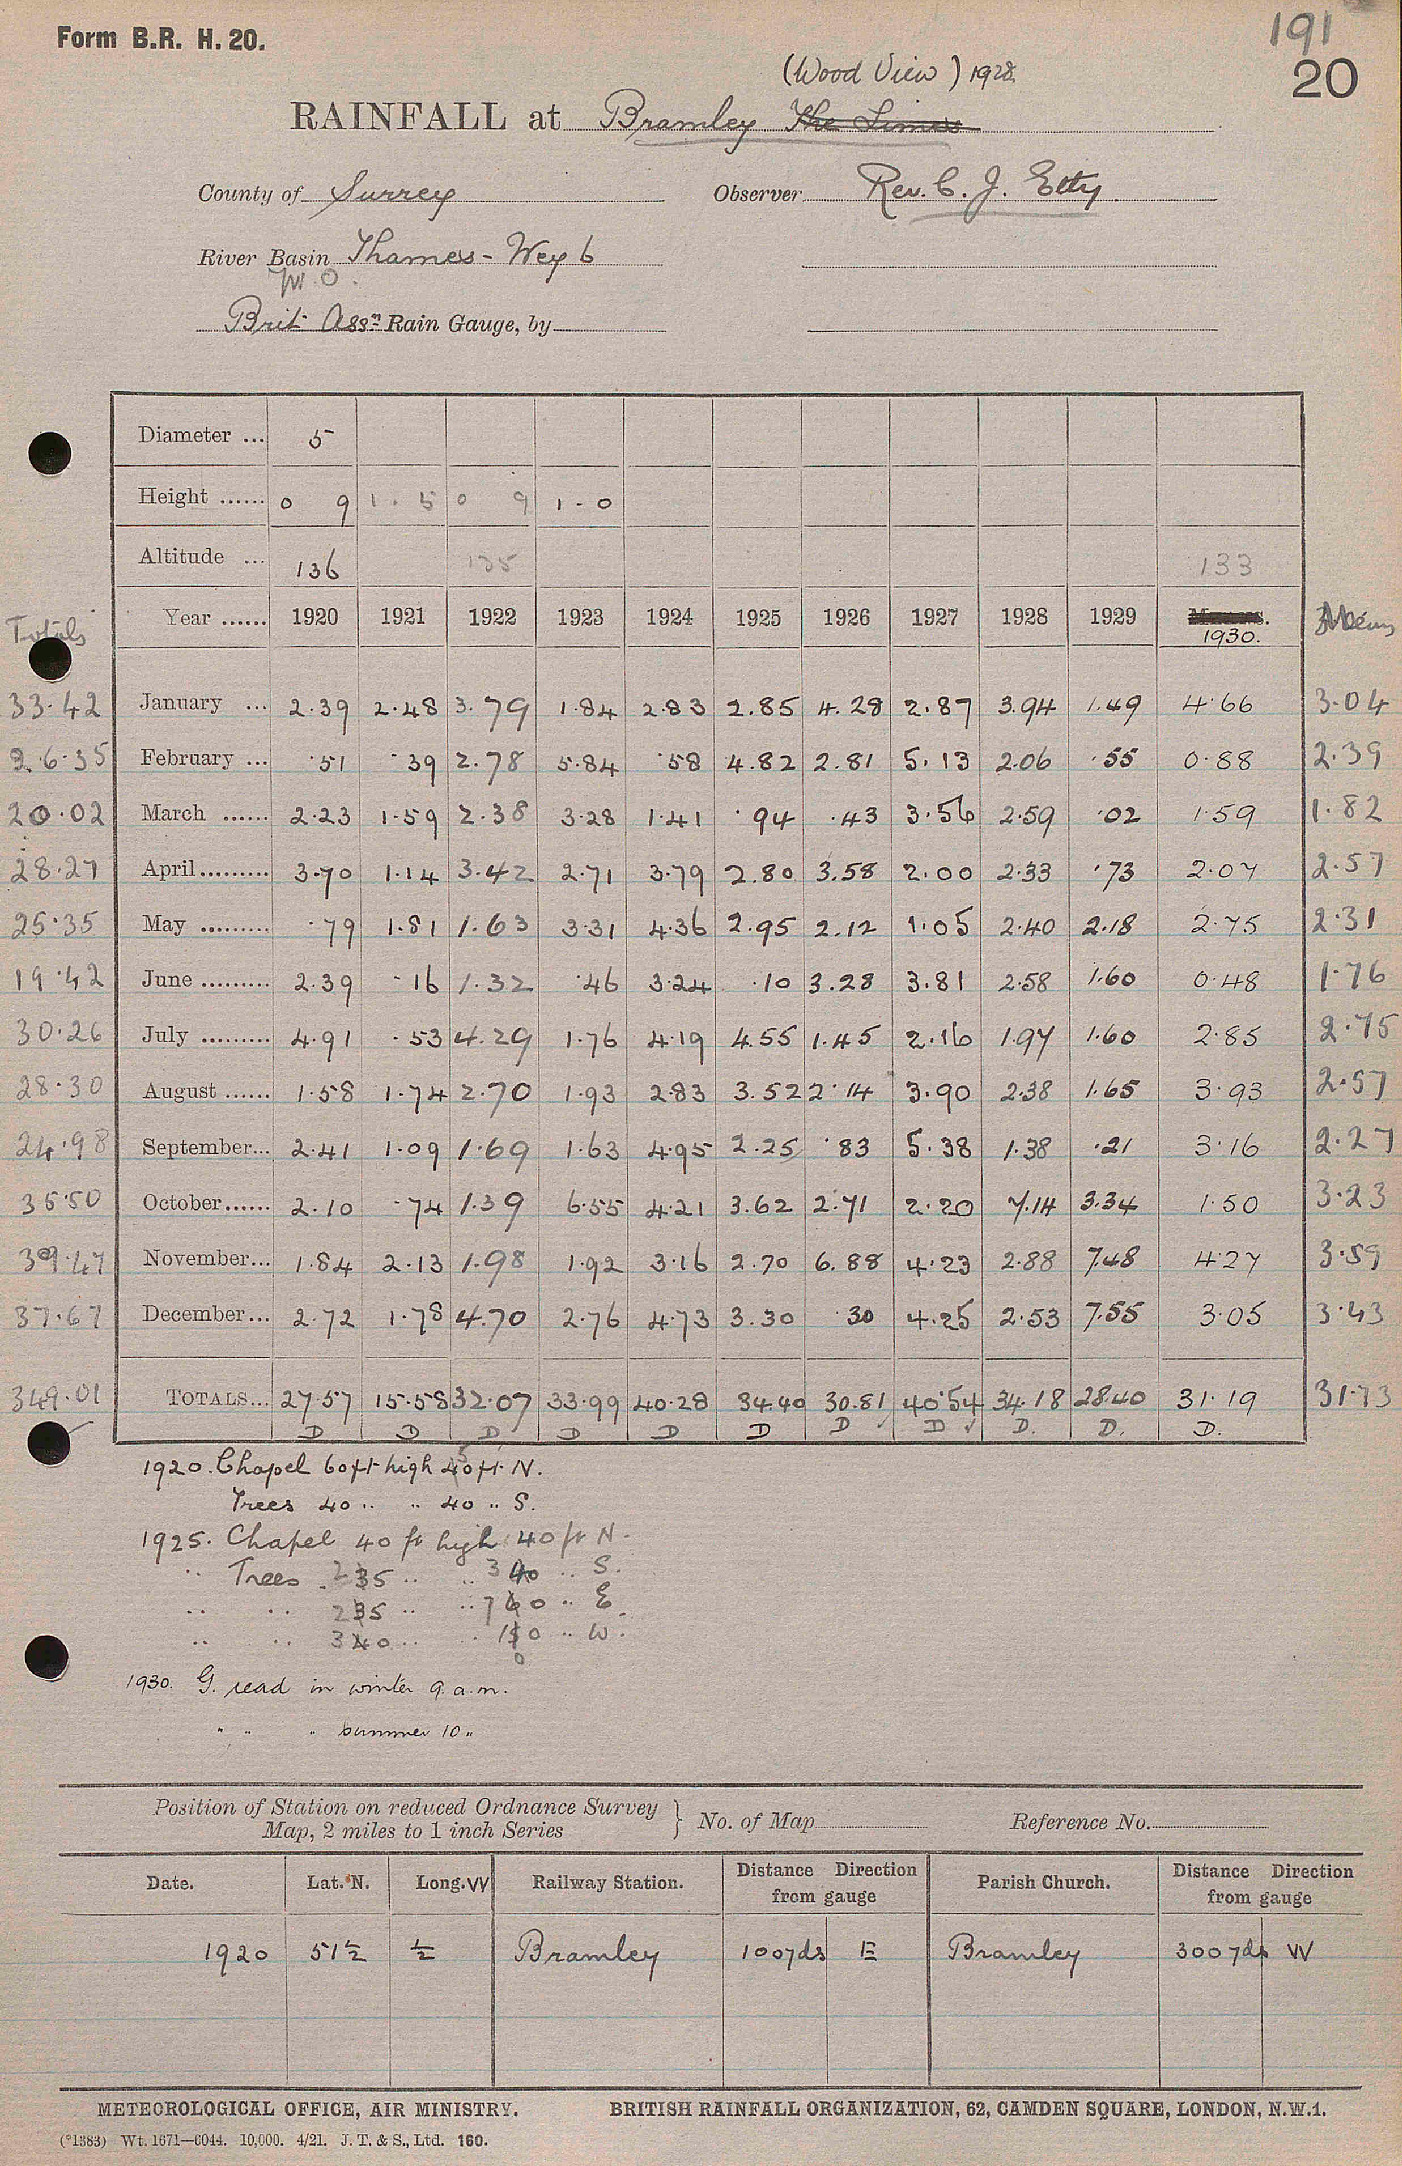 Form B.R. H. 20.
191
20
(Wood View) 1928.
RAINFALL at Bramley The Limes
County of Surrey Observer Rev. C. J. Etty
River Basin Thames - Wey b
M.O.
Brit Assn Rain Gauge, by
Diameter ... 5
Height ...... 0 9 1.5 0 9 1-0
Altitude ... 136 135 133
Totals Year ...... 1920 1921 1922 1923 1924 1925 1926 1927 1928 1929 1930. Means
33.42 January ... 2.39 2.48 3.79 1.84 2.83 2.85 4.28 2.87 3.94 1.49 4.66 3.04
26.35 February ... .51 .39 2.78 5.84 .58 4.82 2.81 5.13 2.06 .55 0.88 2.39
20.02 March ...... 2.23 1.59 2.38 3.28 1.41 .94 .43 3.56 2.59 .02 1.59 1.82
28.27 April ......... 3.70 1.14 3.42 2.71 3.79 2.80 3.58 2.00 2.33 .73 2.07 2.57
25.35 May ......... .79 1.81 1.63 3.31 4.36 2.95 2.12 1.05 2.40 2.18 2.75 2.31
19.42 June ......... 2.39 .16 1.32 .46 3.24 .10 3.28 3.81 2.58 1.60 0.48 1.76
30.26 July ......... 4.91 .53 4.29 1.76 4.19 4.55 1.45 2.16 1.97 1.60 2.85 2.75
28.30 August ...... 1.58 1.74 2.70 1.93 2.83 3.52 2.14 3.90 2.38 1.65 3.93 2.57
24.98 September... 2.41 1.09 1.69 1.63 4.95 2.25 .83 5.38 1.38 .21 3.16 2.27
35.50 October...... 2.10 .74 1.39 6.55 4.21 3.62 2.71 2.20 7.14 3.34 1.50 3.23
39.47 November... 1.84 2.13 1.98 1.92 3.16 2.70 6.88 4.23 2.88 7.48 4.27 3.59
37.67 December... 2.72 1.78 4.70 2.76 4.73 3.30 .30 4.25 2.53 7.55 3.05 3.43
349.01 TOTALS... 27.57 15.58 32.07 33.99 40.28 34.40 30.81 40.54 34.18 28.40 31.19 31.73
D D D D D D D D D. D. D.
1920. Chapel 60ft high ft. N.
Trees 40 " " 40 " S.
1925. Chapel 40 ft high 40 ft N.
" Trees 35 " " 40 " S.
" " 35 " " " E.
" " " " W.
1930. G. read in winter 9 a.m.
" " " summer 10 "
Position of Station on reduced Ordnance Survey
Map, 2 miles to 1 inch Series } No. of Map Reference No.
Date. Lat. °N. Long. W Railway Station. Distance Direction from gauge Parish Church. Distance Direction from gauge
1920 51½ ½ Bramley 100yds E Bramley 300yds W
METEOROLOGICAL OFFICE, AIR MINISTRY. BRITISH RAINFALL ORGANIZATION, 62, CAMDEN SQUARE, LONDON, N.W.1.
(*1383) Wt. 1671—6044. 10,000. 4/21. J. T. & S., Ltd. 160.